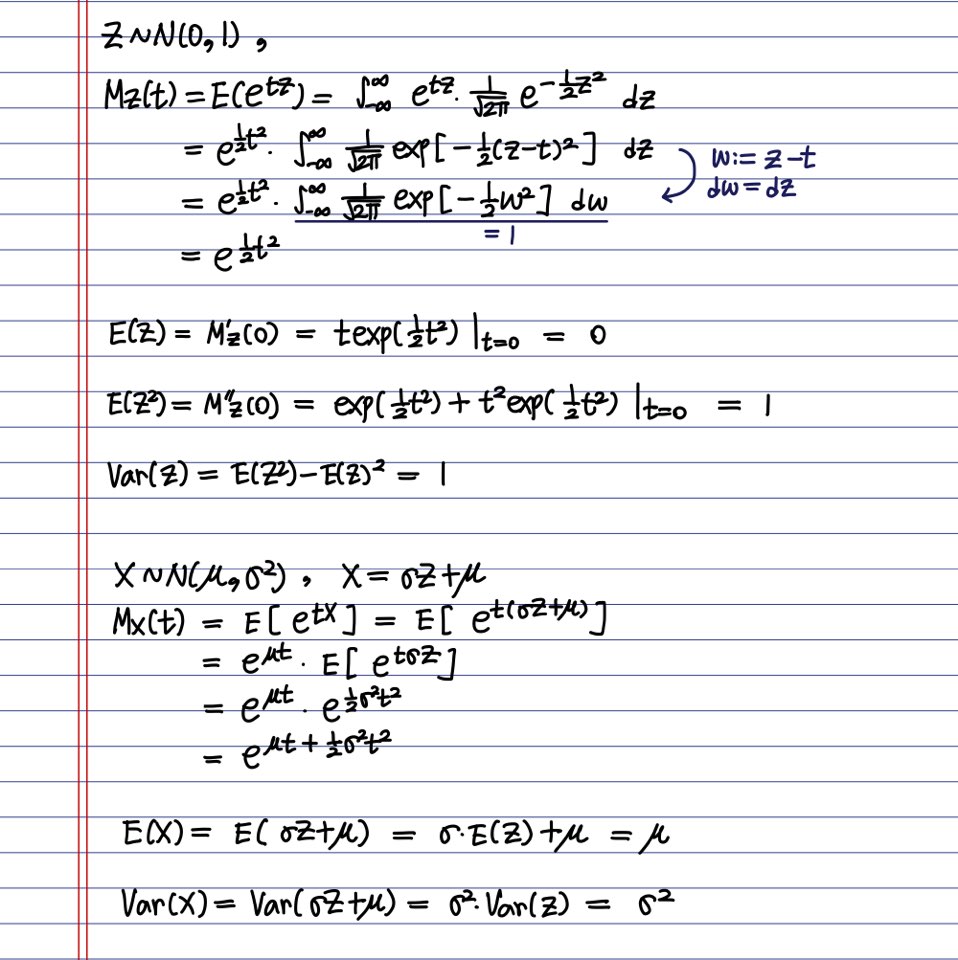 Z ~ N(0, 1) ,
Mz(t) = E(e^{tZ}) = ∫_{-∞}^{∞} e^{tz} · 1/√2π e^{-1/2 z²} dz
= e^{1/2 t²} · ∫_{-∞}^{∞} 1/√2π exp[-1/2(z-t)²] dz
w := z-t
dw = dz
= e^{1/2 t²} · ∫_{-∞}^{∞} 1/√2π exp[-1/2 w²] dw
= 1
= e^{1/2 t²}
E(Z) = M'z(0) = t exp(1/2 t²) |_{t=0} = 0
E(Z²) = M''z(0) = exp(1/2 t²) + t² exp(1/2 t²) |_{t=0} = 1
Var(Z) = E(Z²) - E(Z)² = 1
X ~ N(μ, σ²) , X = σZ+μ
Mx(t) = E[e^{tX}] = E[e^{t(σZ+μ)}]
= e^{μt} · E[e^{tσZ}]
= e^{μt} · e^{1/2 σ²t²}
= e^{μt + 1/2 σ²t²}
E(X) = E(σZ+μ) = σ·E(Z)+μ = μ
Var(X) = Var(σZ+μ) = σ²·Var(Z) = σ²